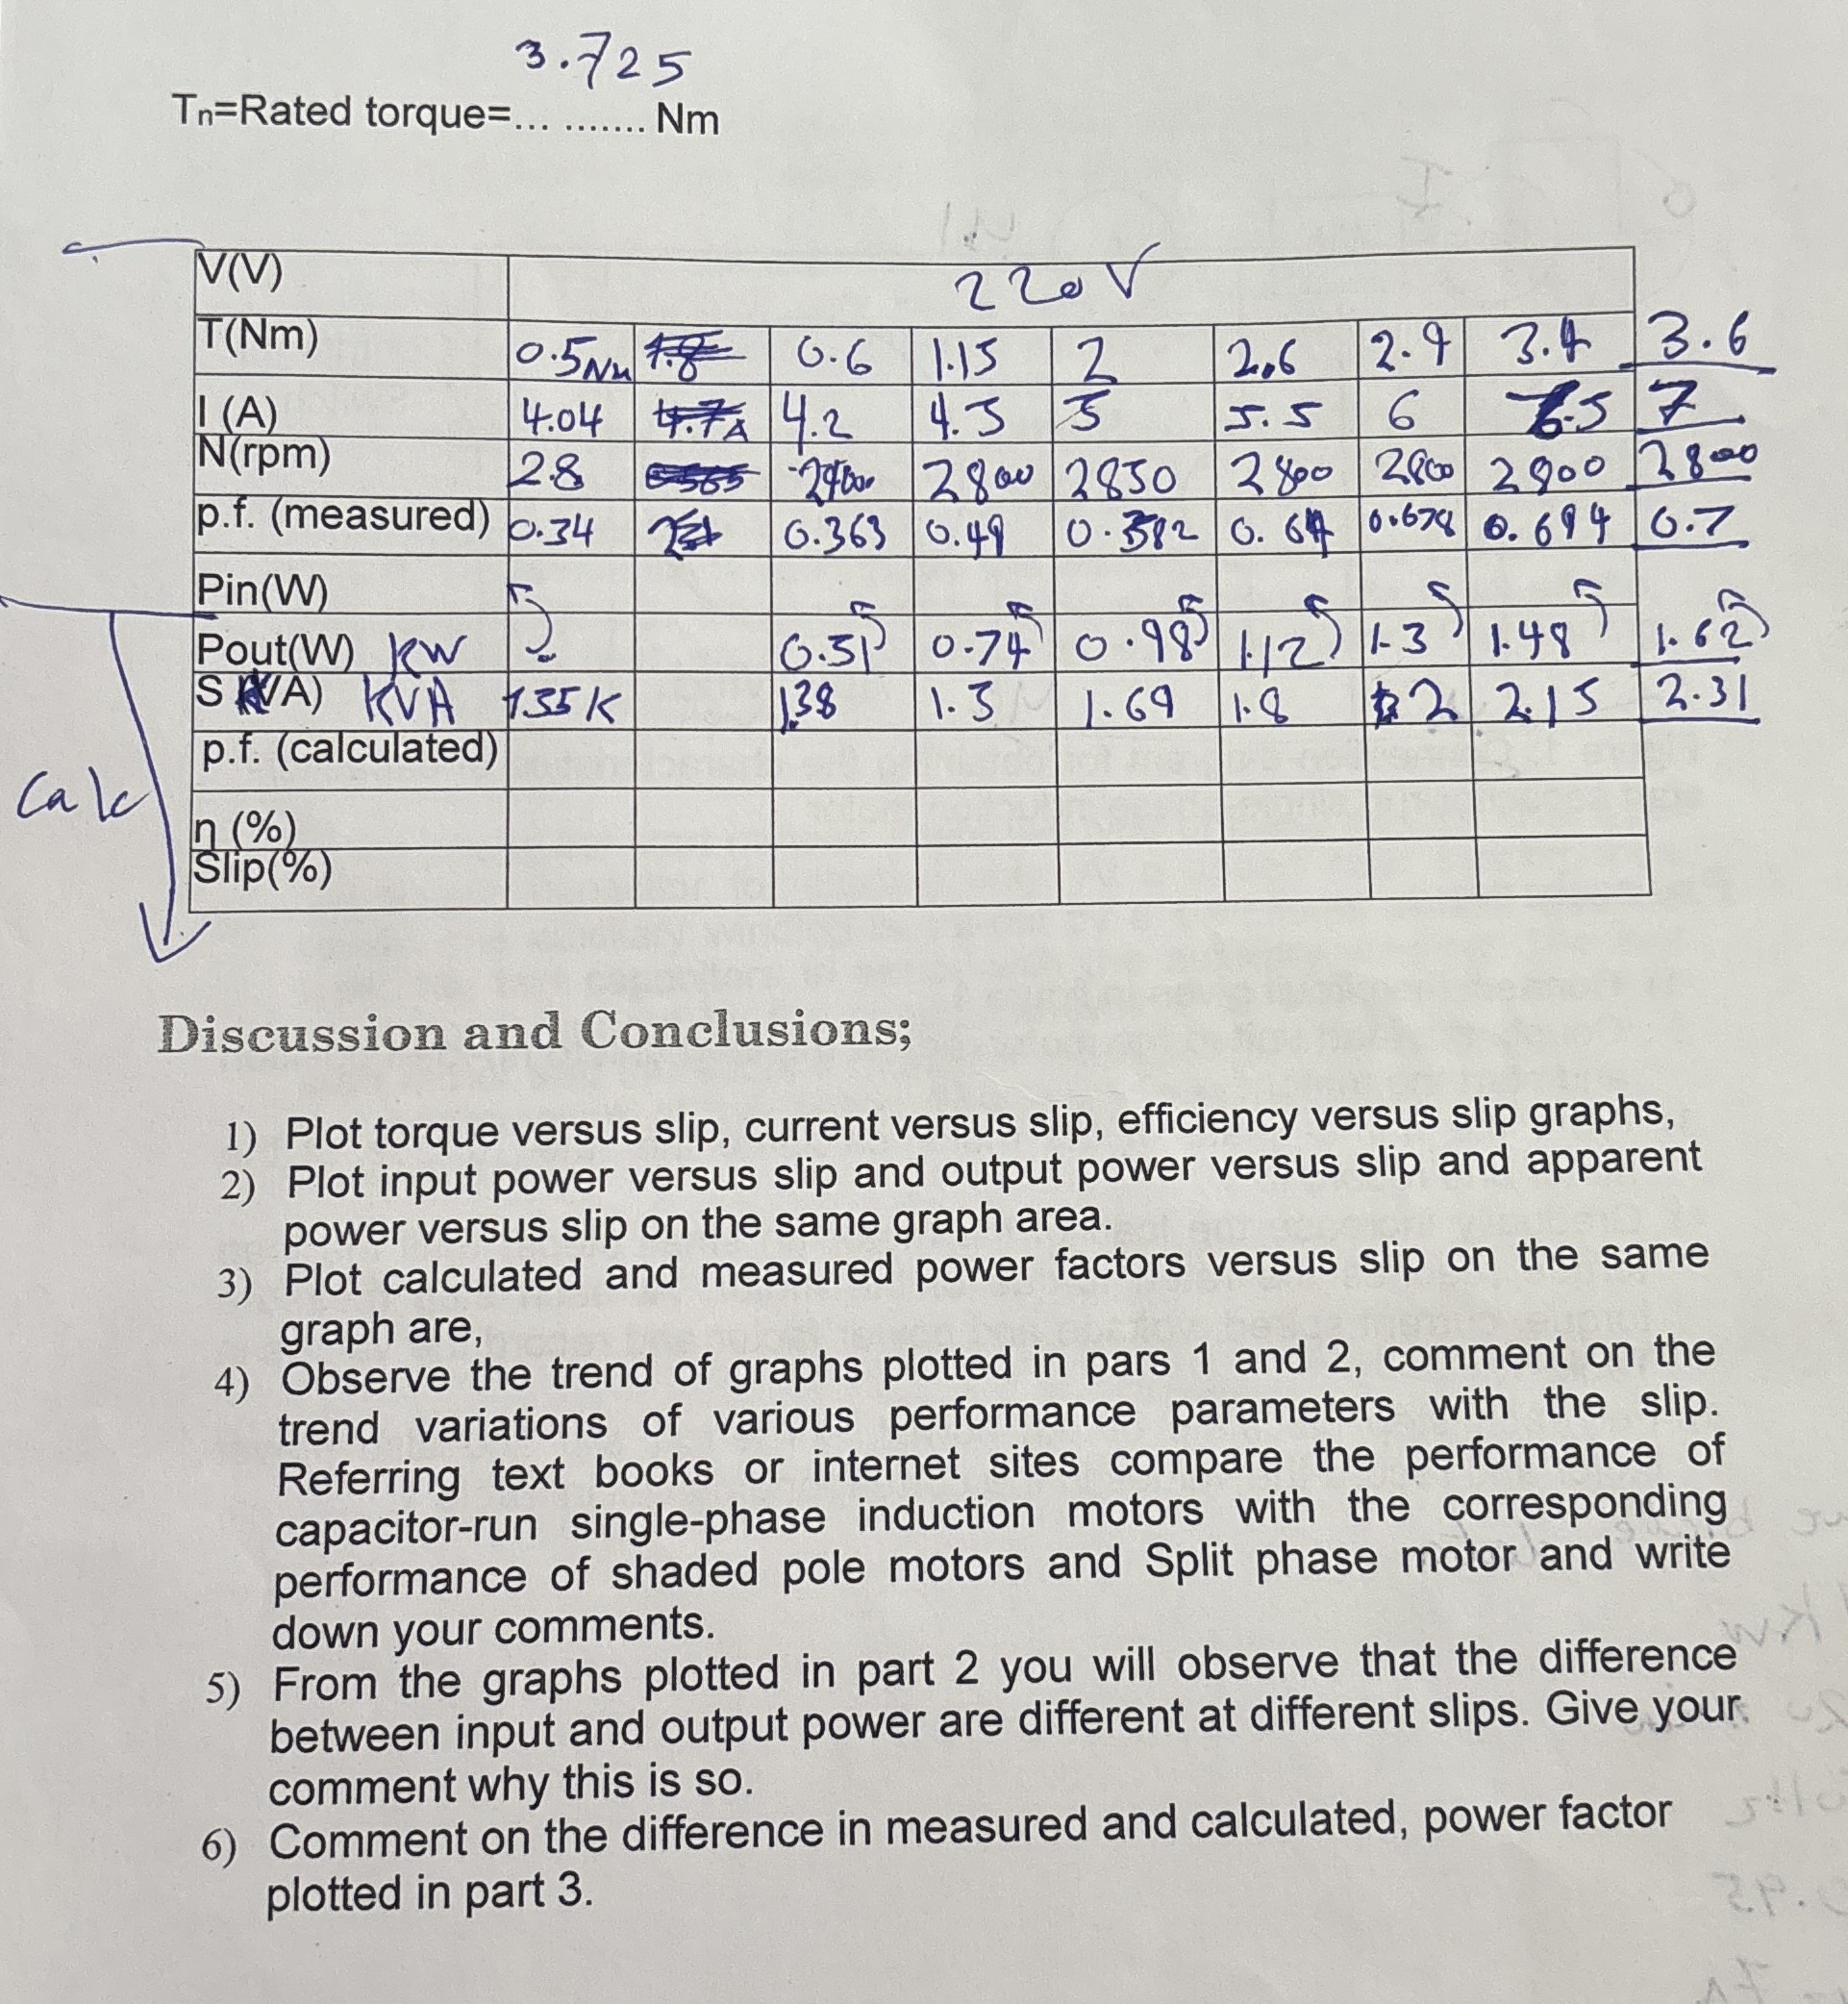 3.725
Tn=Rated torque=... ....... Nm
V(V) 220V
T(Nm) 0.5Nm 1.8 0.6 1.15 2 2.6 2.9 3.4 3.6
I (A) 4.04 4.7A 4.2 4.5 5 5.5 6 6.5 7
N(rpm) 2.8 2800 2850 2800 2800 2900 2800
p.f. (measured) 0.34 0.363 0.49 0.582 0.64 0.678 0.694 0.7
Pin(W)
Pout(W) KW 0.51 0.74 0.98 1.12 1.3 1.48 1.62
S (VA) KVA 1.35K 1.38 1.5 1.69 1.8 2 2.15 2.31
p.f. (calculated)
Calc
η (%)
Slip(%)
Discussion and Conclusions;
1) Plot torque versus slip, current versus slip, efficiency versus slip graphs,
2) Plot input power versus slip and output power versus slip and apparent
power versus slip on the same graph area.
3) Plot calculated and measured power factors versus slip on the same
graph are,
4) Observe the trend of graphs plotted in pars 1 and 2, comment on the
trend variations of various performance parameters with the slip.
Referring text books or internet sites compare the performance of
capacitor-run single-phase induction motors with the corresponding
performance of shaded pole motors and Split phase motor and write
down your comments.
5) From the graphs plotted in part 2 you will observe that the difference
between input and output power are different at different slips. Give your
comment why this is so.
6) Comment on the difference in measured and calculated, power factor
plotted in part 3.